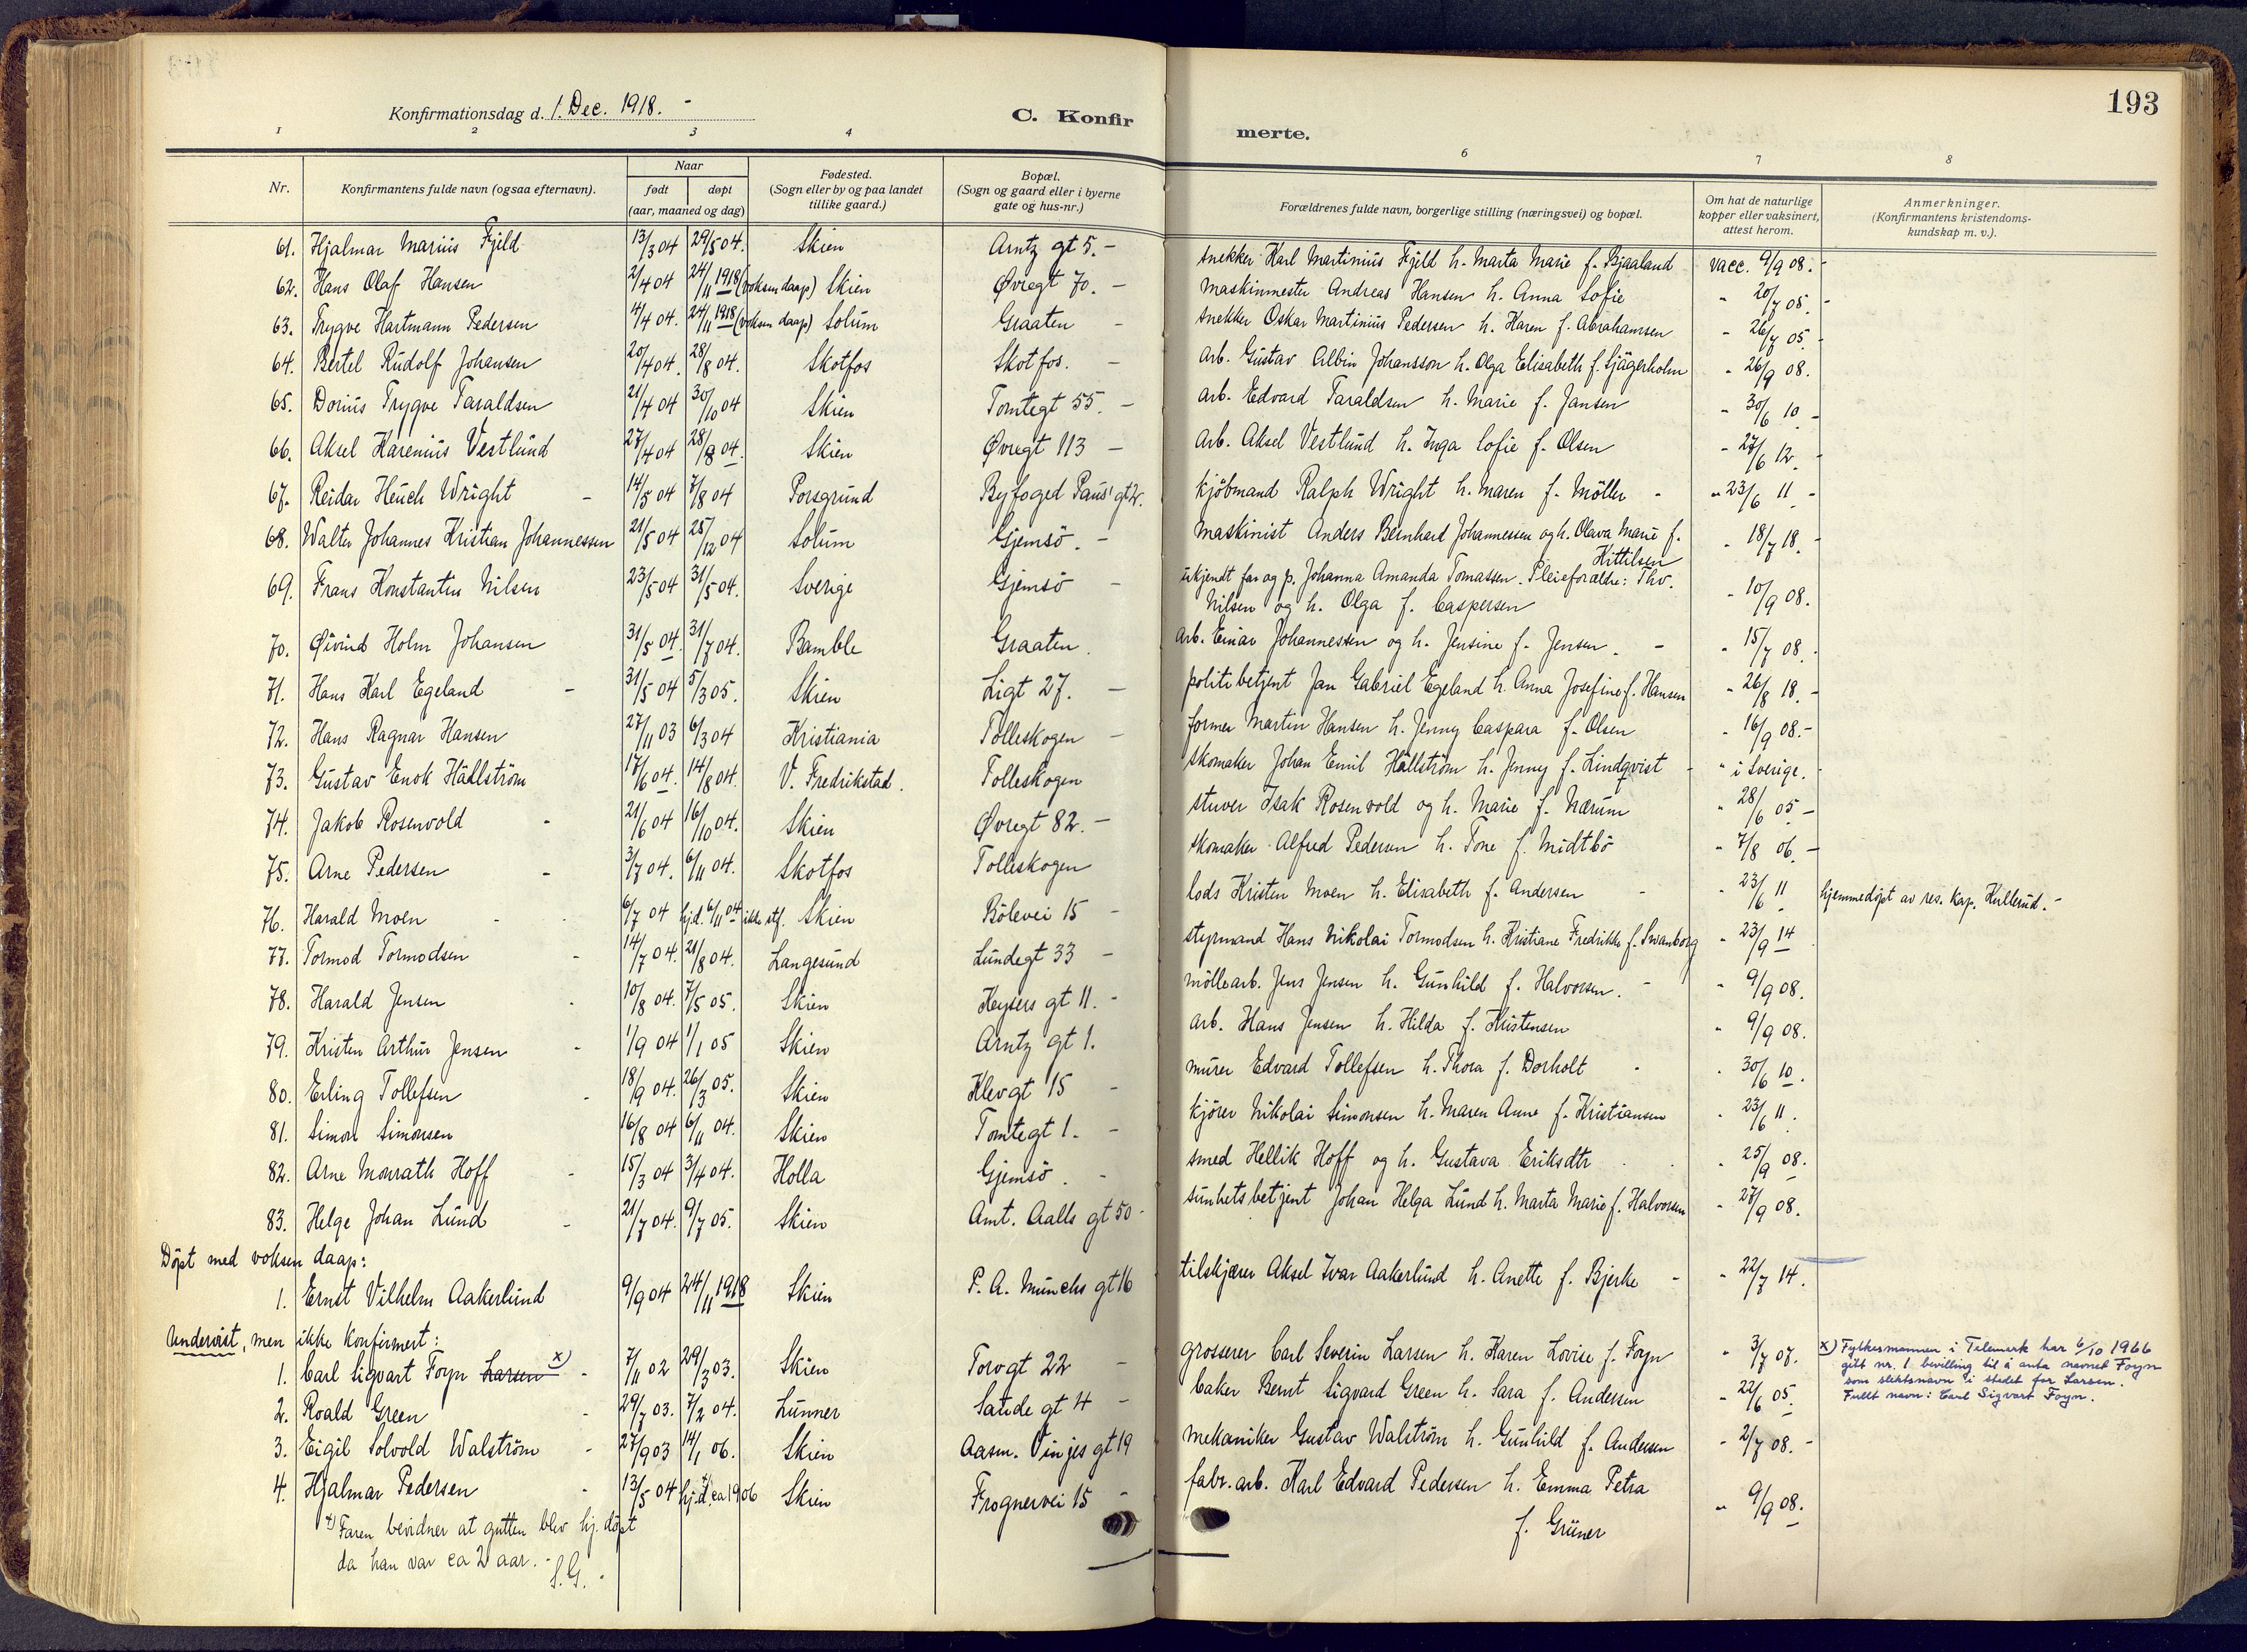 193
Konfirmationsdag d. 1. Dec. 1918. -
C. Konfirmerte.
1 2 3 4 6 7 8
Nr. | Konfirmantens fulde navn (ogsaa efternavn). | Naar født døpt (aar, maaned og dag) | Fødested. (Sogn eller by og paa landet tillike gaard.) | Bopæl. (Sogn og gaard eller i byerne gate og hus-nr.) | Forældrenes fulde navn, borgerlige stilling (næringsvei) og bopæl. | Om hat de naturlige kopper eller vaksinert, attest herom. | Anmerkninger. (Konfirmantens kristendomskundskap m. v.).
61. Hjalmar Marius Fjeld 13/3 04 29/5 04. Skien Arntz gt 5. - snekker Karl Martinius Fjeld h. Marta Marie f. Bjaaland vacc. 9/9 08. -
62. Hans Olaf Hansen 2/4 04 24/11 1918 (voksen daap) Skien Øvregt 70. - Maskinmester Andreas Hansen h. Anna Sofie " 20/7 05. -
63. Trygve Hartmann Pedersen 14/4 04. 24/11 1918 (voksen daap) Solum Graaten - snekker Oskar Martinius Pedersen h. Karen f. Abrahamsen - 26/7 05. -
64. Bertel Rudolf Johansen 20/4 04. 28/8 04. Skotfos Skotfos. - Arb. Gustav Albin Johansson h. Olga Elisabeth f. Sjägerholm " 26/9 08.
65. Dorius Trygve Taraldsen 21/4 04 30/10 04 Skien Tomtegt 55. - Arb. Edvard Taraldsen h. Marie f. Jansen - 30/6 10. -
66. Aksel Karenius Vestlund 27/4 04 28/8 04. Skien Øvregt 113 - Arb. Aksel Vestlund h. Inga Sofie f. Olsen - 27/6 12. -
67. Reidar Heuch Wright - 14/5 04 7/8 04 Porsgrund Byfoged Paus' gt 2. Kjöbmand Ralph Wright h. Maren f. Möller - " 23/6 11 -
68. Walter Johannes Kristian Johannessen 21/5 04 25/12 04 Solum Gjemsö. - Maskinist Anders Bernhard Johannessen og h. Olava Marie f. Kittilsen " 18/7 18. -
69. Frans Konstantin Nilsen 23/5 04 31/5 04. Sverige Gjemsö - ukjendt far og p. Johanna Amanda Tomassen. Pleieforældre: Thv.
Nilsen og h. Olga f. Caspersen - 10/9 08.
70. Øivind Holm Johansen 31/5 04. 31/7 04. Bamble Graaten. Arb. Einar Johannessen og h. Jensine f. Jensen. - " 15/7 08. -
71. Hans Karl Egeland - 31/5 04 5/3 05. Skien Ligt 27. - politibetjent Jan Gabriel Egeland h. Anna Josefine f. Hansen " 26/8 18. -
72. Hans Ragnar Hansen 27/11 03 6/3 04 Kristiania Tolleskogen - former Martin Hansen h. Jenny Caspara f. Olsen " 16/9 08. -
73. Gustav Enok Hällström 17/6 04. 14/8 04. V. Fredrikstad. Tolleskogen skomaker Johan Emil Hällström h. Jenny f. Lindqvist - " i Sverige. -
74. Jakob Rosenvold - 21/6 04 16/10 04. Skien Øvregt 82. - stuver Isak Rosenvold og h. Marie f. Nærum " 28/6 05 -
75. Arne Pedersen - 3/7 04. 6/11 04. Skotfos Tolleskogen skomaker Alfred Pedersen h. Tone f. Midtbö " 7/8 06. -
76. Harald Moen - 6/7 04 hj.d. 6/11 04 ikke stf. Skien Bölevei 15 - lods Kristen Moen h. Elisabeth f. Andersen - " 23/6 11 hjemmedöpt av res. kap. Kullerud. -
77. Tormod Tormodsen - 14/7 04. 21/8 04. Langesund Lundegt 33 - styrmand Hans Nikolai Tormodsen h. Kristiane Fredrikke f. Swanborg " 23/9 14
78. Harald Jensen . 10/8 04. 7/5 05. Skien Keysers gt 11. - möllearb. Jens Jensen h. Gunhild f. Halvorsen. - " 9/9 08.
79. Kristen Arthur Jensen - 1/9 04 1/1 05 Skien Arntz gt 1. arb. Hans Jensen h. Hilda f. Kristensen " 9/9 08.
80. Erling Tollefsen - 18/9 04. 26/3 05. Skien Klevgt 15 - murer Edvard Tollefsen h. Thora f. Dorholt - " 30/6 10.
81. Simon Simonsen 16/8 04 6/11 04. Skien Tomtegt 1. - kjörer Nikolai Simonsen h. Maren Anne f. Kristiansen " 23/6 11.
82. Arne Monrath Hoff - 15/3 04 3/4 04. Holla Gjemsö. - smed Hellik Hoff og h. Gustava Eriksdtr " 25/9 08.
83. Helge Johan Lund - 21/7 04. 9/7 05. Skien Amt. Aalls gt 50 - sunhetsbetjent Johan Helga Lund h. Marta Marie f. Halvorsen - 27/9 08.
Döpt med voksen daap:
1. Ernst Vilhelm Aakerlund 9/9 04 24/11 1918 Skien P. A. Munchs gt 16 tilskjærer Aksel Ivar Aakerlund h. Anette f. Bjerke - " 22/7 14.
Undervist, men ikke konfirmert:
1. Carl Sigvart Foyn Larsen x) - 7/11 02 29/3 03. Skien Torvgt 22 - grosserer Carl Severin Larsen h. Karen Lovise f. Foyn " 3/7 07. x) Fylkesmannen i Telemark har 6/10 1966
gitt nr. 1 bevilling til å anta navnet Foyn
som slektsnavn i stedet for Larsen.
Fullt navn: Carl Sigvart Foyn.
2. Roald Green - 29/7 03. 7/2 04. Lunner Satide gt 4 - baker Bernt Sigvard Green h. Sara f. Andersen - 22/6 05.
3. Eigil Solvold Walström - 27/9 03 14/1 06. Skien Aasm. Vinjes gt 19 mekaniker Gustav Walström h. Gunhild f. Andersen - 2/7 08. -
4. Hjalmar Pedersen - 13/5 04 hj.d. +) ca 1906 Skien Frognervei 15 - fabr. arb. Karl Edvard Pedersen h. Emma Petra
f. Grüner " 9/9 08.
+) Faren bevidner at gutten blev hj. döpt
da han var ca 2 aar. -
S. G. -